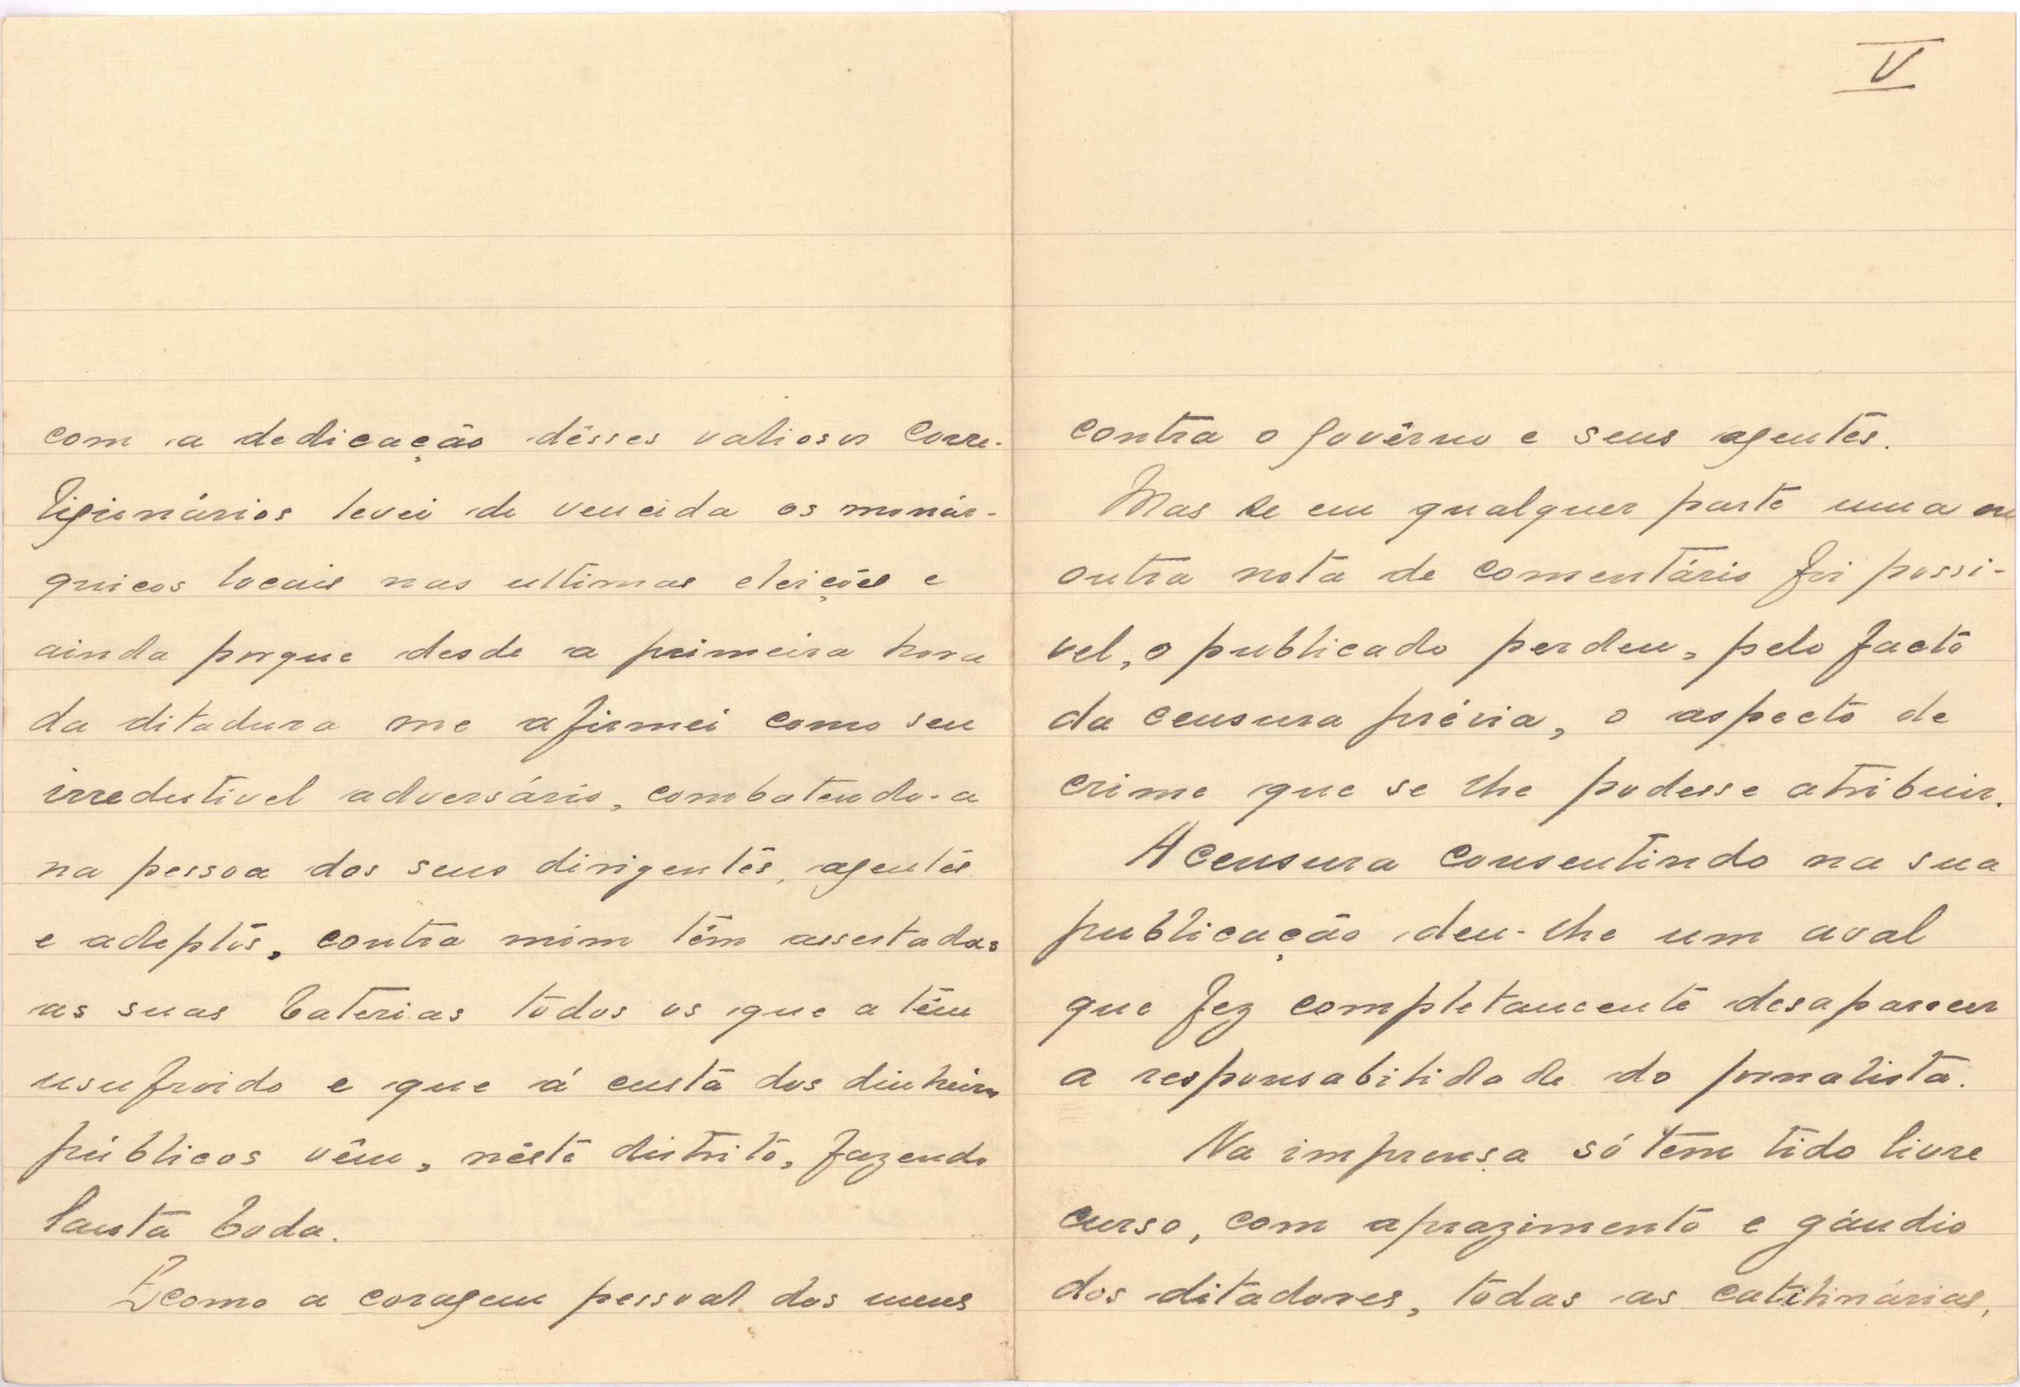 com a dedicação dêsses valiosos Corre-
ligionários levei de vencida os monár-
quicos locais nas ultimas eleições e
ainda porque desde a primeira hora
da ditadura me afirmei como seu
irredutivel adversário, combatendo-a
na pessoa dos seus dirigentes, agentes
e adeptos, contra mim têm assestadas
as suas baterias todos os que a têm
usufroido e que á custa dos dinheiros
públicos vêm, nêste distrito, fazendo
lauta boda.
E como a coragem pessoal dos meus
V
contra o govêrno e seus agentes.
Mas se em qualquer parte uma ou
outra nota de comentário foi possi-
vel, o publicado perdeu, pelo facto
da censura prévia, o aspecto de
crime que se lhe podesse atribuir.
A censura consentindo na sua
publicação deu-lhe um aval
que fez completamente desaparecer
a responsabilidade do jornalista.
Na imprensa só tem tido livre
curso, com aprazimento e gáudio
dos ditadores, todas as catilinárias,